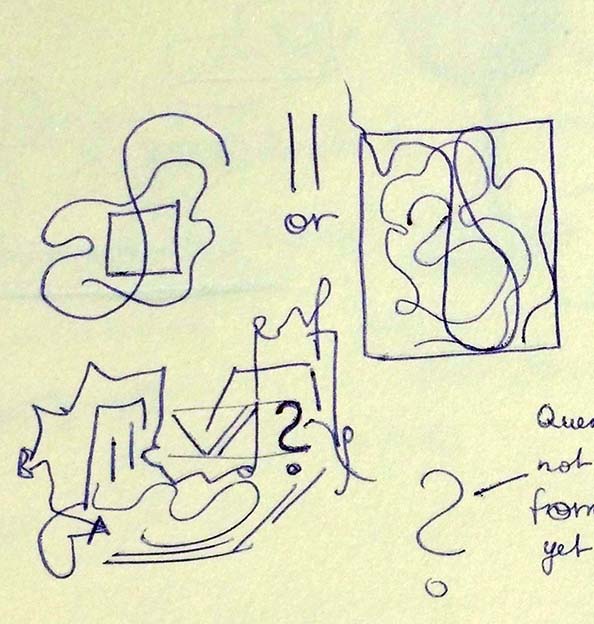 or
?
B
A
Ques
not
form
yet
?